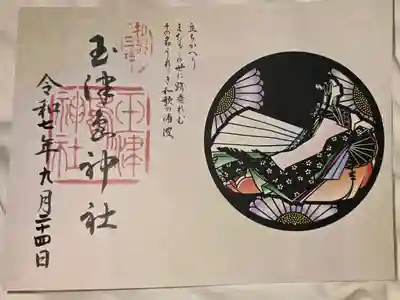 立ちかへり
またもこの世に跡垂れむ
その名うれしき和歌の浦波
玉津島神社
令和七年九月二十四日